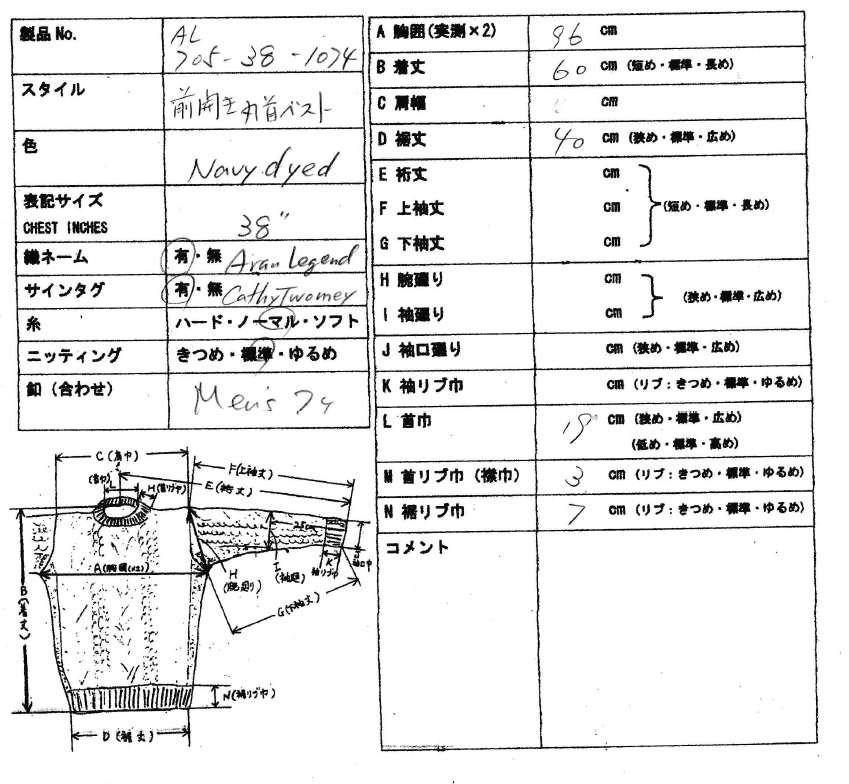 製品No.
AL
705-38-1074
スタイル
前開き丸首ベスト
色
Navy dyed
表記サイズ
CHEST INCHES
38"
織ネーム
有・無 Aran Legend
サインタグ
有・無 Cathy Twomey
糸
ハード・ノーマル・ソフト
ニッティング
きつめ・標準・ゆるめ
釦（合わせ）
Men's
A 胸囲(実測×2)
96 cm
B 着丈
60 cm (短め・標準・長め)
C 肩幅
cm
D 裾丈
40 cm (狭め・標準・広め)
E 裄丈
cm
F 上袖丈
cm
(短め・標準・長め)
G 下袖丈
cm
H 腕廻り
cm
(狭め・標準・広め)
I 袖廻り
cm
J 袖口廻り
cm (狭め・標準・広め)
K 袖リブ巾
cm (リブ：きつめ・標準・ゆるめ)
L 首巾
19 cm (狭め・標準・広め)
(低め・標準・高め)
M 首リブ巾（襟巾）
3 cm (リブ：きつめ・標準・ゆるめ)
N 裾リブ巾
7 cm (リブ：きつめ・標準・ゆるめ)
コメント
C (肩巾)
F(上袖丈)
E(裄丈)
L
(首巾)
M(首リブ巾)
25cm
A (胸囲(×2))
B(着丈)
H
(腕廻り)
I
(袖廻)
K
袖リブ巾
G(下袖丈)
N(裾リブ巾)
D (裾丈)